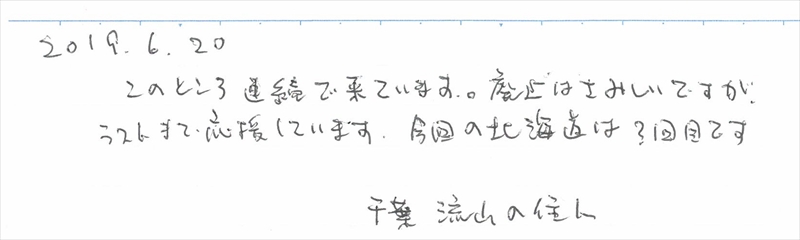 2019.6.20
このところ連続で来ています。廃止はさみしいですが、
ラストまで応援しています。今回の北海道は3回目です
千葉 流山の住人